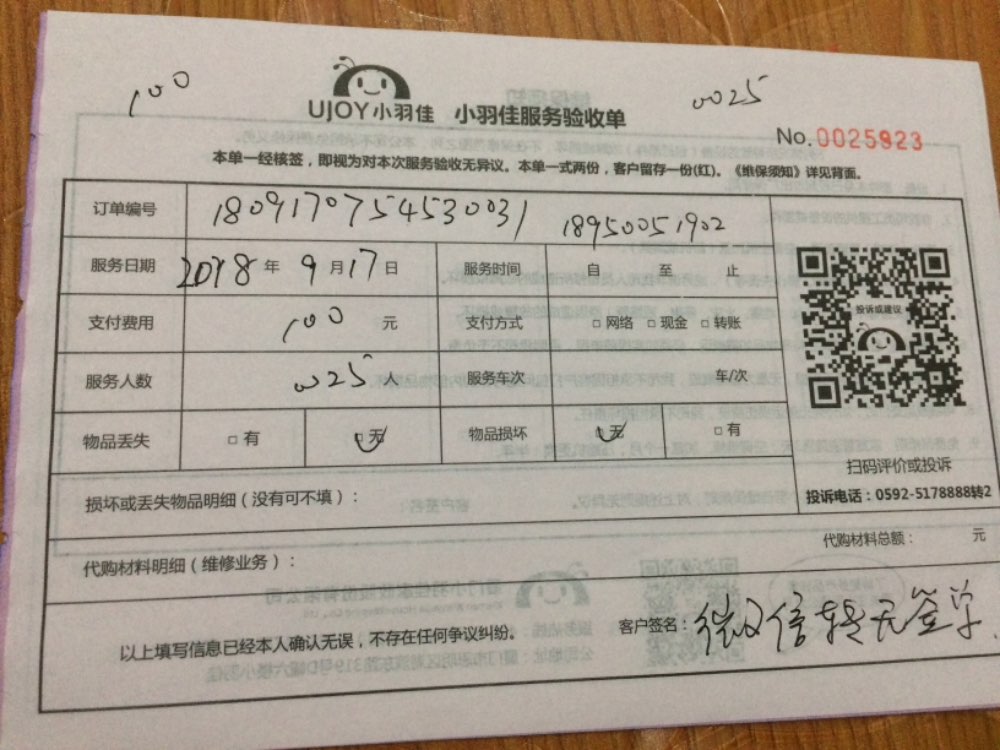 100
0025
UJOY小羽佳 小羽佳服务验收单
No.0025923
本单一经核签，即视为对本次服务验收无异议。本单一式两份，客户留存一份(红)。《维保须知》详见背面。
订单编号 1809170754530031 18950051902
服务日期 2018 年 9 月 17 日 服务时间 自 至 止
支付费用 100 元 支付方式 □ 网络 □ 现金 □ 转账
服务人数 0025 人 服务车次 车/次
物品丢失 □ 有 □ 无 物品损坏 □ 无 □ 有
投诉或建议
扫码评价或投诉
投诉电话：0592-5178888转2
损坏或丢失物品明细（没有可不填）：
代购材料明细（维修业务）：
代购材料总额： 元
以上填写信息已经本人确认无误，不存在任何争议纠纷。
客户签名：微信转无签单